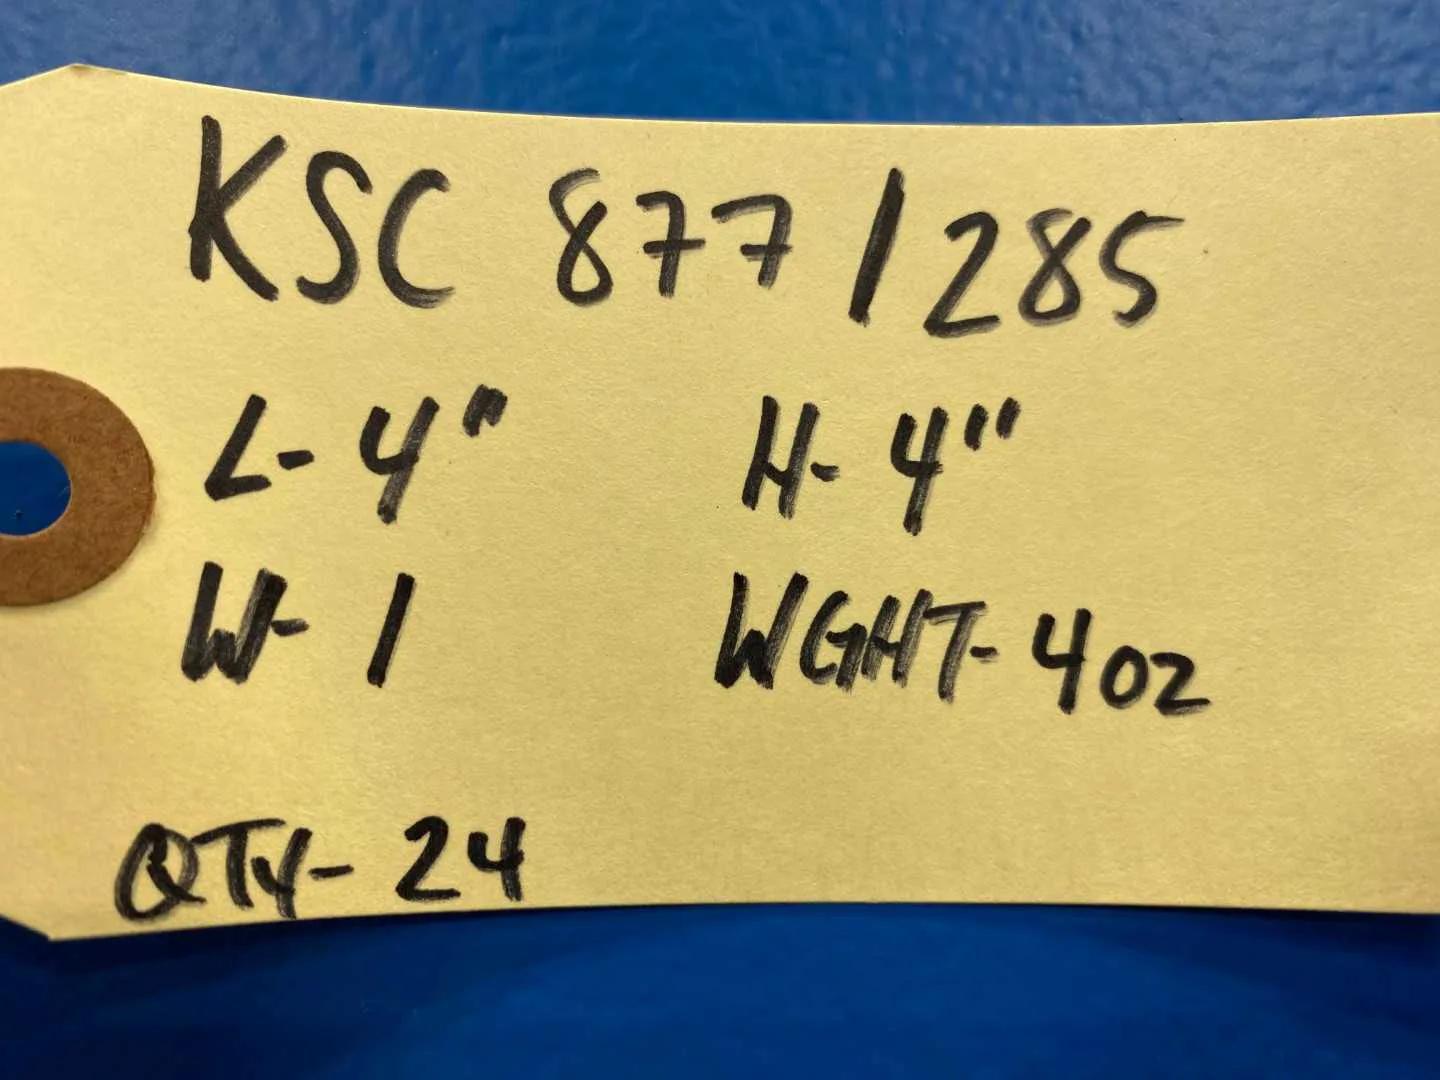 KSC 877/285
L-4" H-4"
W-1 WGHT-4oz
QTY-24